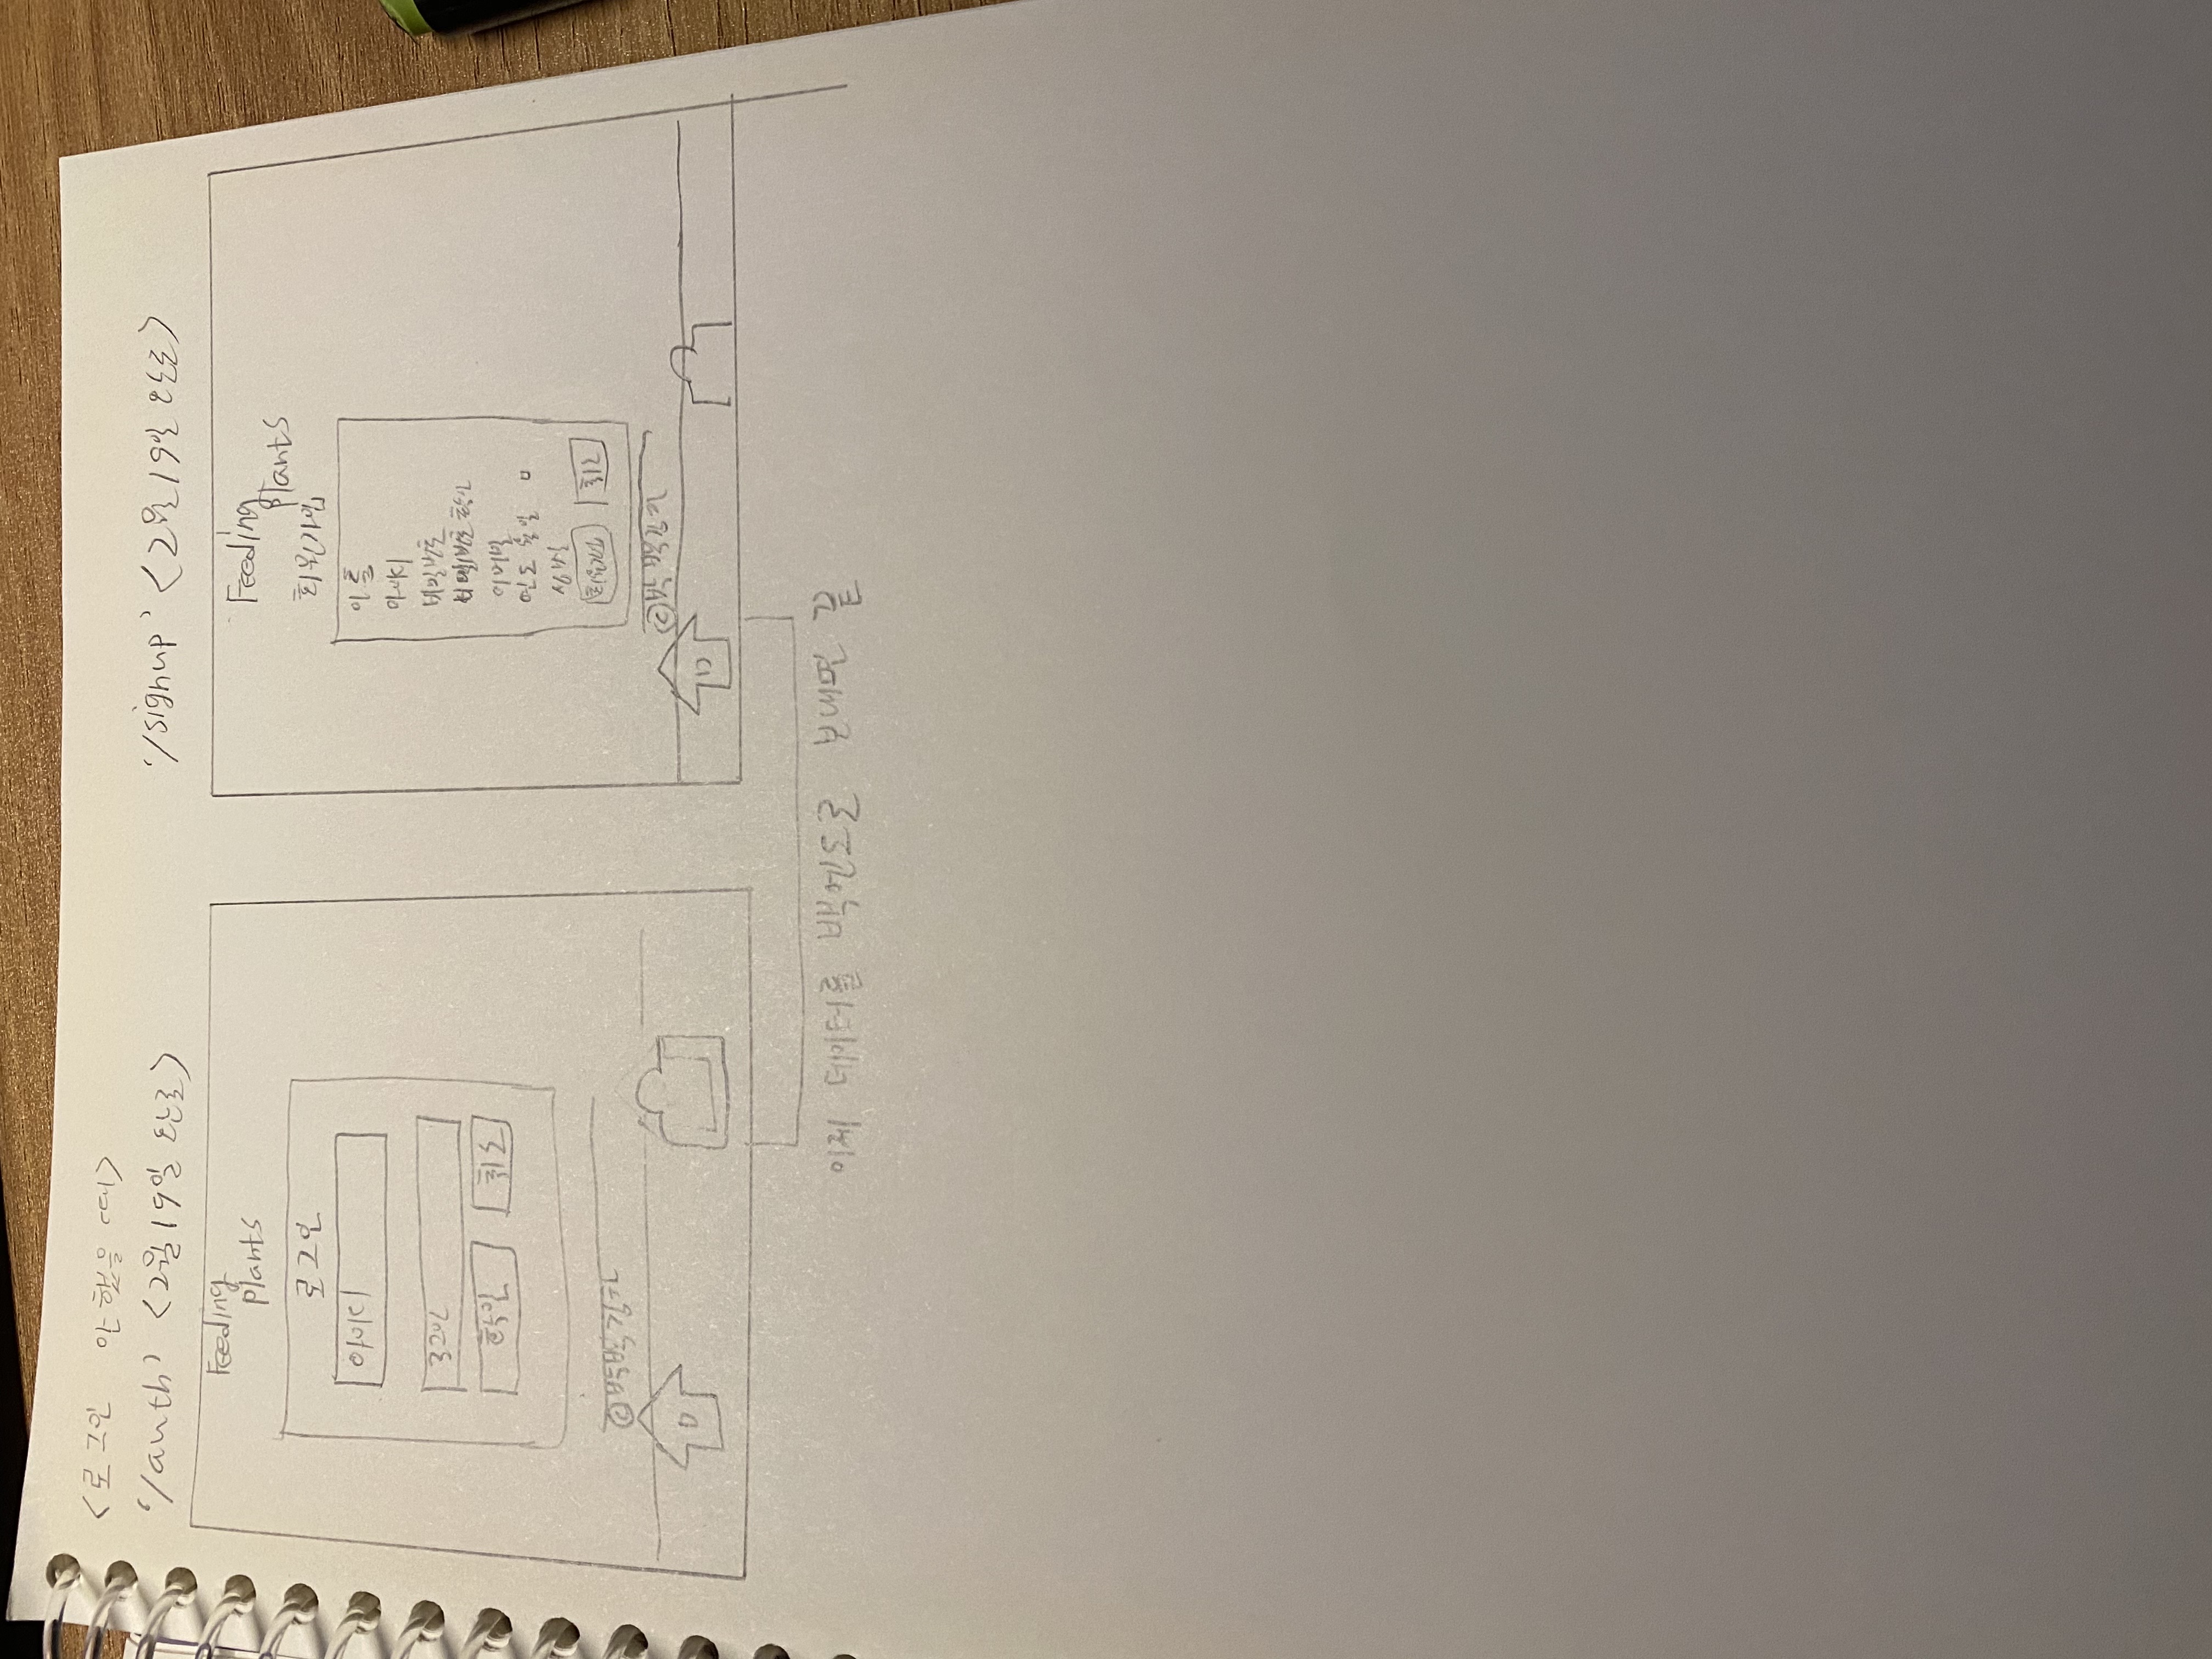 <로그인 안했을 때>
'/auth' <2월19일 완료>
Feeding
Plants
로그인
아이디
로그인
확인 취소
'/signup' <2월19일 완료>
Feeding
Plants
회원가입
이름
아이디
비밀번호
비밀번호 확인
이메일
연도 월 일
성별
회원가입 취소
이제 데이터를 백엔드로 보내면 끝